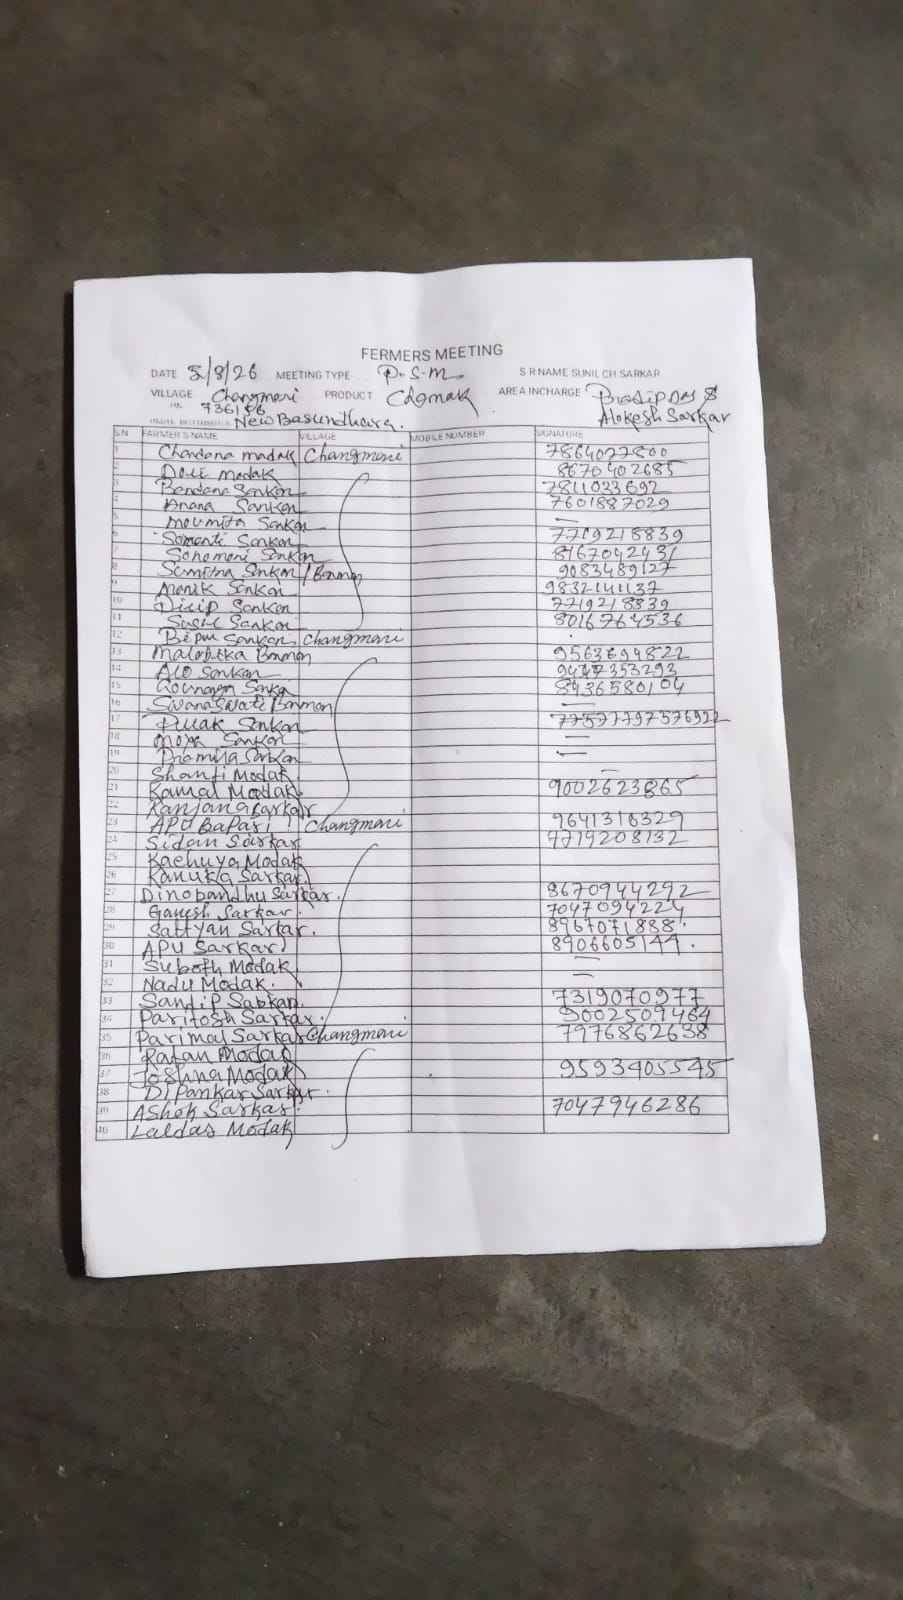 FERMERS MEETING
DATE 5/8/26 MEETING TYPE P.S.M S R NAME SUNIL CH SARKAR
VILLAGE Changmari PRODUCT AREA INCHARGE Pradip Das &
736 Alokesh Sarkar
New Basundhara.
S.N FARMER'S NAME VILLAGE MOBILE NUMBER SIGNATURE
1 Chandana modak Changmari 7864077800
2 modak 8670402685
3 Bandana Sarkar 7811033692
4 Sarkar 7601887029
5 Moumita Sarkar —
6 Sarkar 7719218839
7 Sonamoni Sarkar 8167042431
8 Sumitra Sarkar / Barman 9083489127
9 Manik Sarkar 9832141137
10 Dilip Sarkar 7719218839
11 Susil Sarkar 8016764536
12 Sarkar Changmari
13 Barman 9563694822
14 Alo Sarkar
15 Sarkar 8436580104
16 Barman —
17 Pulak Sarkar
18 Sarkar —
19 Promila Sarkar —
20 Shanti Modak —
21 Kamal Modak 9002623865
22 Ranjana Sarkar
23 APU BaPari Changmari 9641318329
24 Sidan Sarkar 9719208132
25 Kachuya Modak
26 Kanuka Sarkar
27 Dinobandhu Sarkar. 8670944292
28 Ganesh Sarkar. 7047094224
29 Sattyan Sarkar. 8967071888.
30 APU Sarkar 8906605144.
31 Suboth Modak —
32 Nadu Modak. —
33 Sandip Sarkar. 7319070977
34 Paritosh Sarkar. 9002509464
35 Parimal Sarkar Changmari 7976862638
36 Ratan Modak
37 Joshna Modak 9593405545
38 Dipankar Sarkar.
39 Ashok Sarkar. 7047946286
40 Laldas Modak